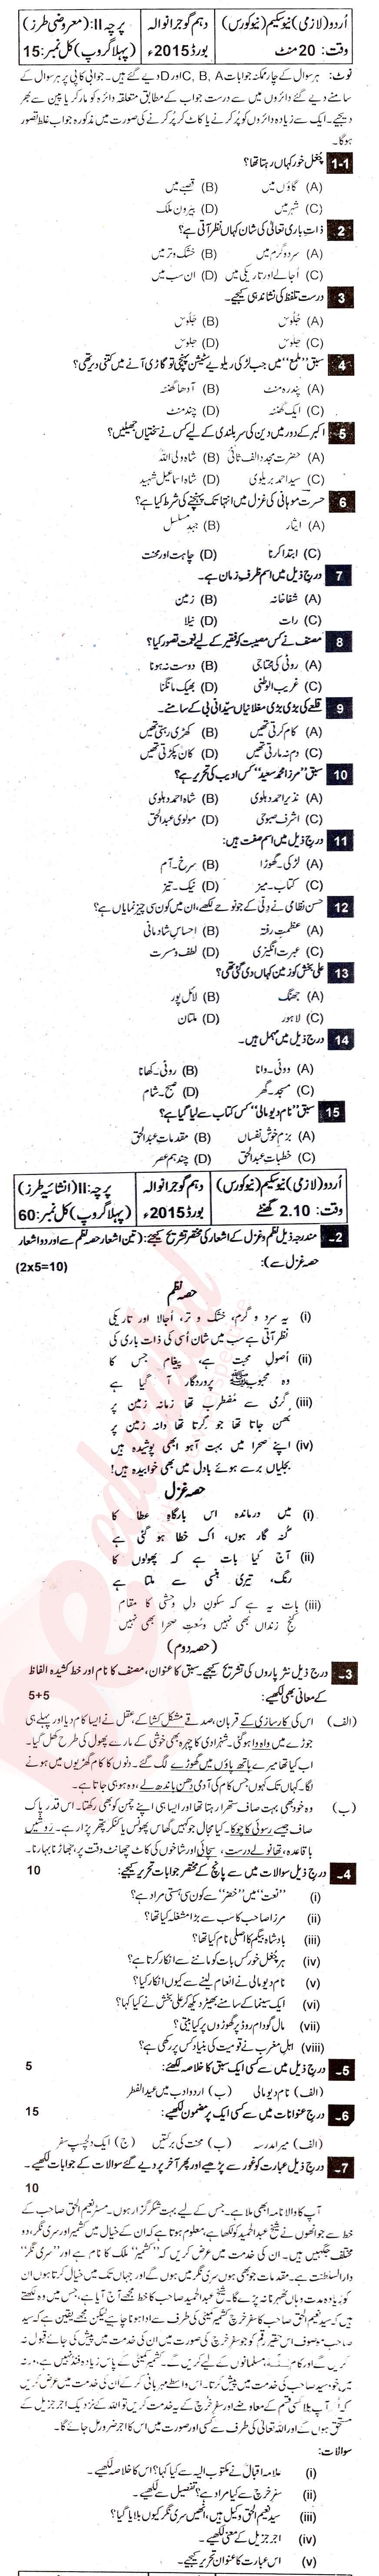 اُردو (لازمی) نیو سکیم (نیو کورس) دہم گوجرانوالہ پرچہ II: (معروضی طرز)
وقت: 20 منٹ بورڈ 2015ء (پہلا گروپ) کل نمبر: 15
نوٹ: ہر سوال کے چار ممکنہ جوابات C, B, A اور D دیے گئے ہیں۔ جوابی کاپی پر ہر سوال کے
سامنے دیے گئے دائروں میں سے درست جواب کے مطابق متعلقہ دائرہ کو مارکر یا پین سے بھر
دیجیے۔ ایک سے زیادہ دائروں کو پُر کرنے یا کاٹ کر پُر کرنے کی صورت میں مذکورہ جواب غلط تصور
ہوگا۔
1-1 چغل خور کہاں رہتا تھا؟
(A) گاؤں میں (B) قصبے میں
(C) شہر میں (D) بیرونِ ملک
2 ذاتِ باری تعالیٰ کی شان کہاں نظر آتی ہے؟
(A) سرد و گرم میں (B) خشک و تر میں
(C) اُجالے اور تاریکی میں (D) ان سب میں
3 درست تلفظ کی نشاندہی کیجیے۔
(A) جُلُوس (B) جَلُوس
(C) جلوس (D) جلوس
4 سبق ’’ملمع‘‘ میں جب لڑکی ریلوے سٹیشن پہنچی تو گاڑی آنے میں کتنی دیر تھی؟
(A) پندرہ منٹ (B) آدھا گھنٹہ
(C) ایک گھنٹہ (D) چند منٹ
5 اکبر کے دور میں دین کی سربلندی کے لیے کس نے سختیاں جھیلیں؟
(A) حضرت مجدد الف ثانی (B) شاہ ولی اللہ
(C) سید احمد بریلوی (D) شاہ اسماعیل شہید
6 حسرت موہانی کی غزل میں انتہا تک پہنچنے کی شرط کیا ہے؟
(A) ایثار (B) جہدِ مسلسل
(C) ابتدا کرنا (D) چاہت اور محنت
7 درج ذیل میں اسم ظرفِ زمان ہے۔
(A) شفاخانہ (B) زمین
(C) رات (D) نیلا
8 مصنف نے کس مصیبت کو فقیر کے لیے نعمت تصور کیا؟
(A) روٹی کی محتاجی (B) دوست نہ ہونا
(C) غریب الوطنی (D) بھیک مانگنا
9 قلعے کی بڑی بڑی مغلانیاں سیّدانی بی کے سامنے۔
(A) کام کرتی تھیں (B) کھڑی رہتی تھیں
(C) دم نہ مارتی تھیں (D) کان پکڑتی تھیں
10 سبق ’’مرزا محمد سعید‘‘ کس ادیب کی تحریر ہے؟
(A) نذیر احمد دہلوی (B) شاہد احمد دہلوی
(C) اشرف صبوحی (D) مولوی عبدالحق
11 درج ذیل میں اسم صفت ہیں:
(A) لڑکی۔ گھوڑا (B) سرخ۔ آم
(C) کتاب۔ میز (D) نیک۔ تیز
12 حسن نظامی نے دِلّی کے جو نوحے لکھے، ان میں کون سی چیز نمایاں ہے؟
(A) عظمتِ رفتہ (B) احساسِ شادمانی
(C) عبرت انگیزی (D) لطف و مسرت
13 علی بخش کو زمین کہاں دی گئی تھی؟
(A) جھنگ (B) لائل پور
(C) لاہور (D) ملتان
14 درج ذیل میں مہمل ہیں۔
(A) ووٹی۔ وانا (B) روٹی۔ کھانا
(C) مسجد۔ گھر (D) صبح۔ شام
15 سبق ’’نام دیو مالی‘‘ کس کتاب سے لیا گیا ہے؟
(A) بزمِ خوش نفساں (B) مقدماتِ عبدالحق
(C) خطباتِ عبدالحق (D) چند ہم عصر
اُردو (لازمی) نیو سکیم (نیو کورس) دہم گوجرانوالہ پرچہ: II (انشائیہ طرز)
وقت: 2.10 گھنٹے بورڈ 2015ء (پہلا گروپ) کل نمبر: 60
2۔ مندرجہ ذیل نظم و غزل کے اشعار کی مختصر تشریح کیجیے: (تین اشعار حصہ نظم سے اور دو اشعار
حصہ غزل سے): (2x5=10)
حصہ نظم
(i) یہ سرد و گرم، خشک و تر، اُجالا اور تاریکی
نظر آتی ہے سب میں شان اُسی کی ذاتِ باری کی
(ii) اُصولِ محبت ہے، پیغام جس کا
وہ محبوبِ پروردگار آ گیا ہے
(iii) گرمی سے مُضطرب تھا زمانہ زمین پر
بھن جاتا تھا جو گرتا تھا دانہ زمین پر
(iv) اپنے صحرا میں بہت آہو ابھی پوشیدہ ہیں
بجلیاں برسے ہوئے بادل میں بھی خوابیدہ ہیں!
حصہ غزل
(i) میں درماندہ اس بارگاہِ عطا کا
گنہ گار ہوں، اک خطا ہو گئی ہے
(ii) آج کیا بات ہے کہ پھولوں کا
رنگ، تیری ہنسی سے ملتا ہے
(iii) بات یہ ہے کہ سکونِ دلِ وحشی کا مقام
کنجِ زنداں بھی نہیں وسعتِ صحرا بھی نہیں
(حصہ دوم)
3۔ درج ذیل نثر پاروں کی تشریح کیجیے۔ سبق کا عنوان، مصنف کا نام اور خط کشیدہ الفاظ
کے معانی بھی لکھیے: 5+5
(الف) اس کی کارسازی کے قربان، صدقے مشکل کشا کے، عقل نے ایسا کام دیا اور پہلے ہی
جوڑے میں واہ وا ہو گئی۔ شہزادی کا چہرہ بھی خوشی کے مارے پھول کی طرح کھل گیا۔
اب کیا تھا میرے ہاتھ پاؤں میں گھوڑے لگ گئے۔ دنوں کا کام گھڑیوں میں ہونے
لگا۔ کہاں تک کہوں جس کام کی آدمی دھن باندھ لے، وہ ہو ہی جاتا ہے۔
(ب) وہ خود بھی بہت صاف ستھرا رہتا تھا اور ایسا ہی اپنے چمن کو بھی رکھتا۔ اس قدر پاک
صاف جیسے رسوئی کا چوکا۔ کیا مجال جو کہیں گھاس پھونس یا کنکر پتھر پڑا رہے۔ روشیں
باقاعدہ، تھانولے درست، سچائی اور شاخوں کی کاٹ چھانٹ وقت پر، جھاڑنا بہارنا۔
4۔ درج ذیل سوالات میں سے پانچ کے مختصر جوابات تحریر کیجیے: 10
(i) ’’نعت‘‘ میں ’’خضر‘‘ سے کون سی ہستی مراد ہے؟
(ii) مرزا صاحب کا سب سے بڑا مشغلہ کیا تھا؟
(iii) بادشاہ بیگم کا اصلی نام کیا تھا؟
(iv) ہر چغل خور کس بات کو ماننے سے انکار کرتا ہے؟
(v) نام دیو مالی نے انعام لینے سے کیوں انکار کیا؟
(vi) ایک سینما کے سامنے بھیڑ دیکھ کر علی بخش نے کیا کہا؟
(vii) مال گودام روڈ پر گھوڑوں پر کیا بیتی؟
(viii) اہلِ مغرب نے قومیت کی بنیاد کس پر رکھی ہے؟
5۔ درج ذیل میں سے کسی ایک سبق کا خلاصہ لکھیے: 5
(الف) نام دیو مالی (ب) اردو ادب میں عید الفطر
6۔ درج عنوانات میں سے کسی ایک پر مضمون لکھیے: 15
(الف) میرا مدرسہ (ب) محنت کی برکتیں (ج) ایک دلچسپ سفر
7۔ درج ذیل عبارت کو غور سے پڑھیے اور پھر آخر پر دیے گئے سوالات کے جوابات لکھیے۔
10
آپ کا والا نامہ ابھی ملا ہے۔ جس کے لیے بہت شکر گزار ہوں۔ مسٹر نعیم الحق صاحب کے
خط سے جو انھوں نے شیخ عبدالحمید کو لکھا ہے، معلوم ہوتا ہے کہ ان کے خیال میں کشمیر اور سری نگر، دو
مختلف جگہیں ہیں۔ ان کی خدمت میں عرض کریں کہ ’’کشمیر‘‘ ملک کا نام ہے اور ’’سری نگر‘‘
دار السلطنت ہے۔ مقدمات جو بھی ہوں سری نگر میں ہوں گے اور جہاں تک میں خیال کرتا ہوں ان
کو زیادہ مدت وہاں ٹھہرنا نہ پڑے گا۔ شیخ عبدالحمید صاحب کا خط مجھے آج آیا ہے، جس میں وہ لکھتے
ہیں کہ سید نعیم الحق صاحب کا سفر خرچ کشمیر کمیٹی کی طرف سے ادا ہونا چاہیے لیکن مجھے یقین ہے کہ سید
صاحب موصوف اس حقیر رقم کو جو سفر خرچ کی صورت میں ان کی خدمت میں پیش کی جائے قبول نہ
کریں گے اور کام مسلمانوں کے لیے کریں گے۔ کشمیر کمیٹی کے پاس زیادہ فنڈ نہیں ہے، ورنہ
میں خود سید صاحب کی خدمت میں پیش کرتا۔ اس واسطے مہربانی کر کے ان کی خدمت میں عرض کریں
کہ آپ بلا کسی قسم کے معاوضے اور سفر خرچ کے یہ خدمت کریں تو اللہ کے نزدیک اجر جزیل کے
مستحق ہوں گے اور اللہ تعالیٰ کی طرف سے کسی اور صورت میں اس کا اجر ضرور مل جائے گا۔
سوالات:
(i) علامہ اقبال نے مکتوب الیہ سے کیا کہا؟ اس کا خلاصہ لکھیے۔
(ii) سفر خرچ سے کیا مراد ہے؟ تفصیل سے لکھیے۔
(iii) سید نعیم الحق وکیل ہیں، انھیں سری نگر کیوں بلایا گیا؟
(iv) اجر جزیل کے معنی لکھیے۔
(v) اس عبارت کا عنوان تحریر کیجیے۔